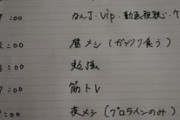 :00 なんJ・Vip・動画視聴・
:00 昼メシ(ガッツリ食う)
:00 勉強
:00 筋トレ
:00 夜メシ(プロテインのみ)